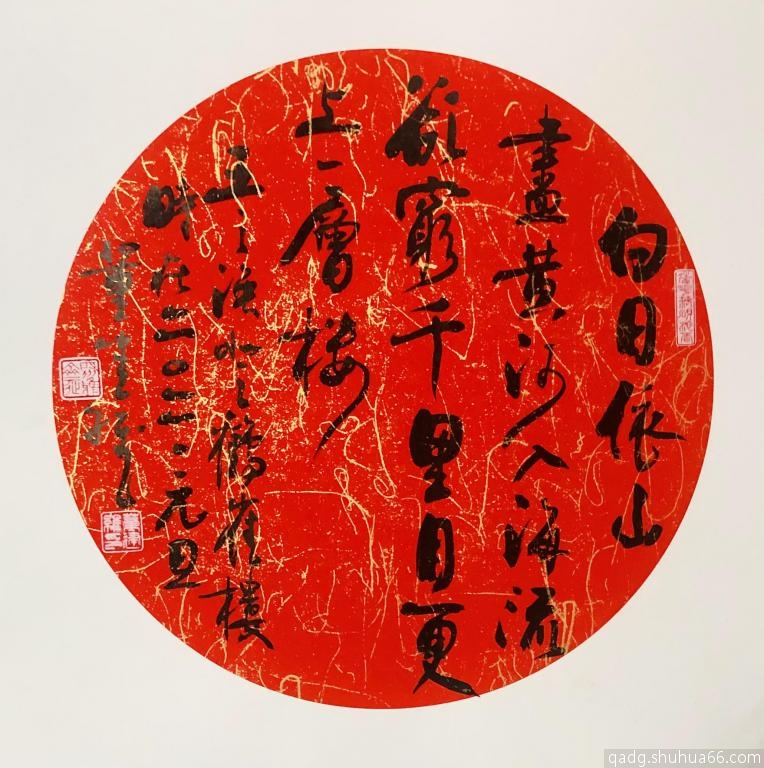 白日依山
盡黄河入海流
欲窮千里目更
上一層樓
王之渙鶴雀樓
時在二〇二二元旦
董
qadg.shuhua66.com